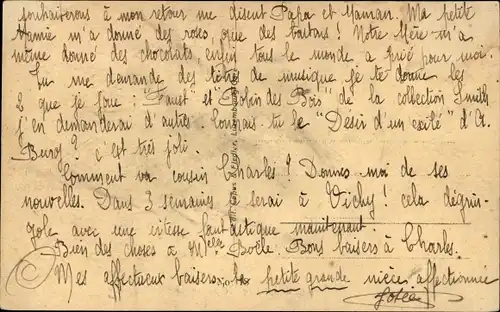 souhaiterons à mon retour me disent Papa et Maman. Ma petite
Mamie m'a donné des roses, que des boutons ! Notre Mère m'a
même donné des chocolats, enfin tout le monde a prié pour moi.
Tu me demande des titres de musique je te donne les
2 que je joue : "Faust" et "Robin des Bois" de la collection Smith
j'en demanderai d'autres. Connais-tu le "Désir d'un exilé" d'A.
Burg ? c'est très joli.
Comment va cousin Charles ? Donnes-moi de ses
nouvelles. Dans 3 semaines je serai à Vichy ! cela dégrin-
gole avec une vitesse fantastique maintenant.
Bien des choses à Melle Boële. Bons baisers à Charles.
Mes affectueux baisers, ta petite grande nièce affectionnée